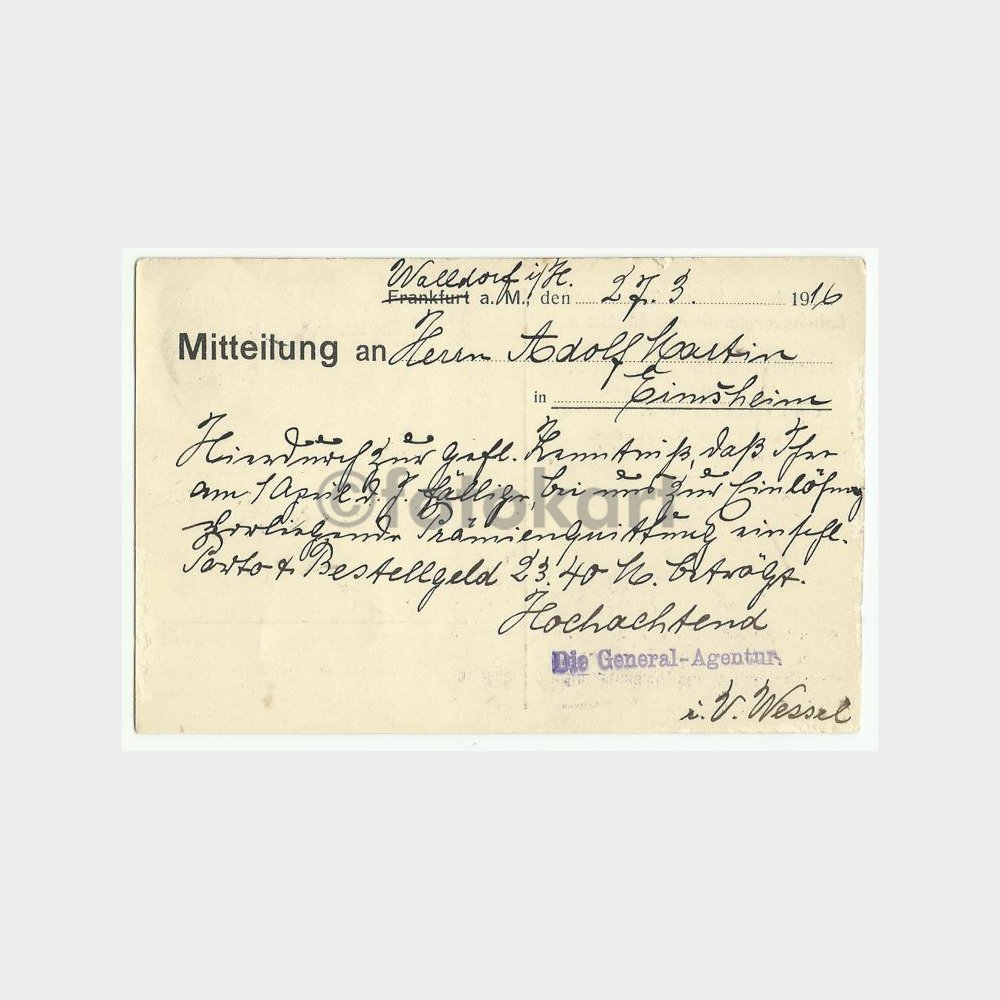 Walldorf i/H.
Frankfurt a. M., den 27. 3. 1916
Mitteilung an Herrn Adolf Martin
in Eimsheim
Hierdurch zur gefl. Kenntniß, daß Ihre
am 1 April d. J. fällige, bei uns zur Einlösung
vorliegende Prämienquittung einschl.
Porto & Bestellgeld 23.40 M. beträgt.
Hochachtend
Die General-Agentur.
i. V. Wessel
©fotokarl